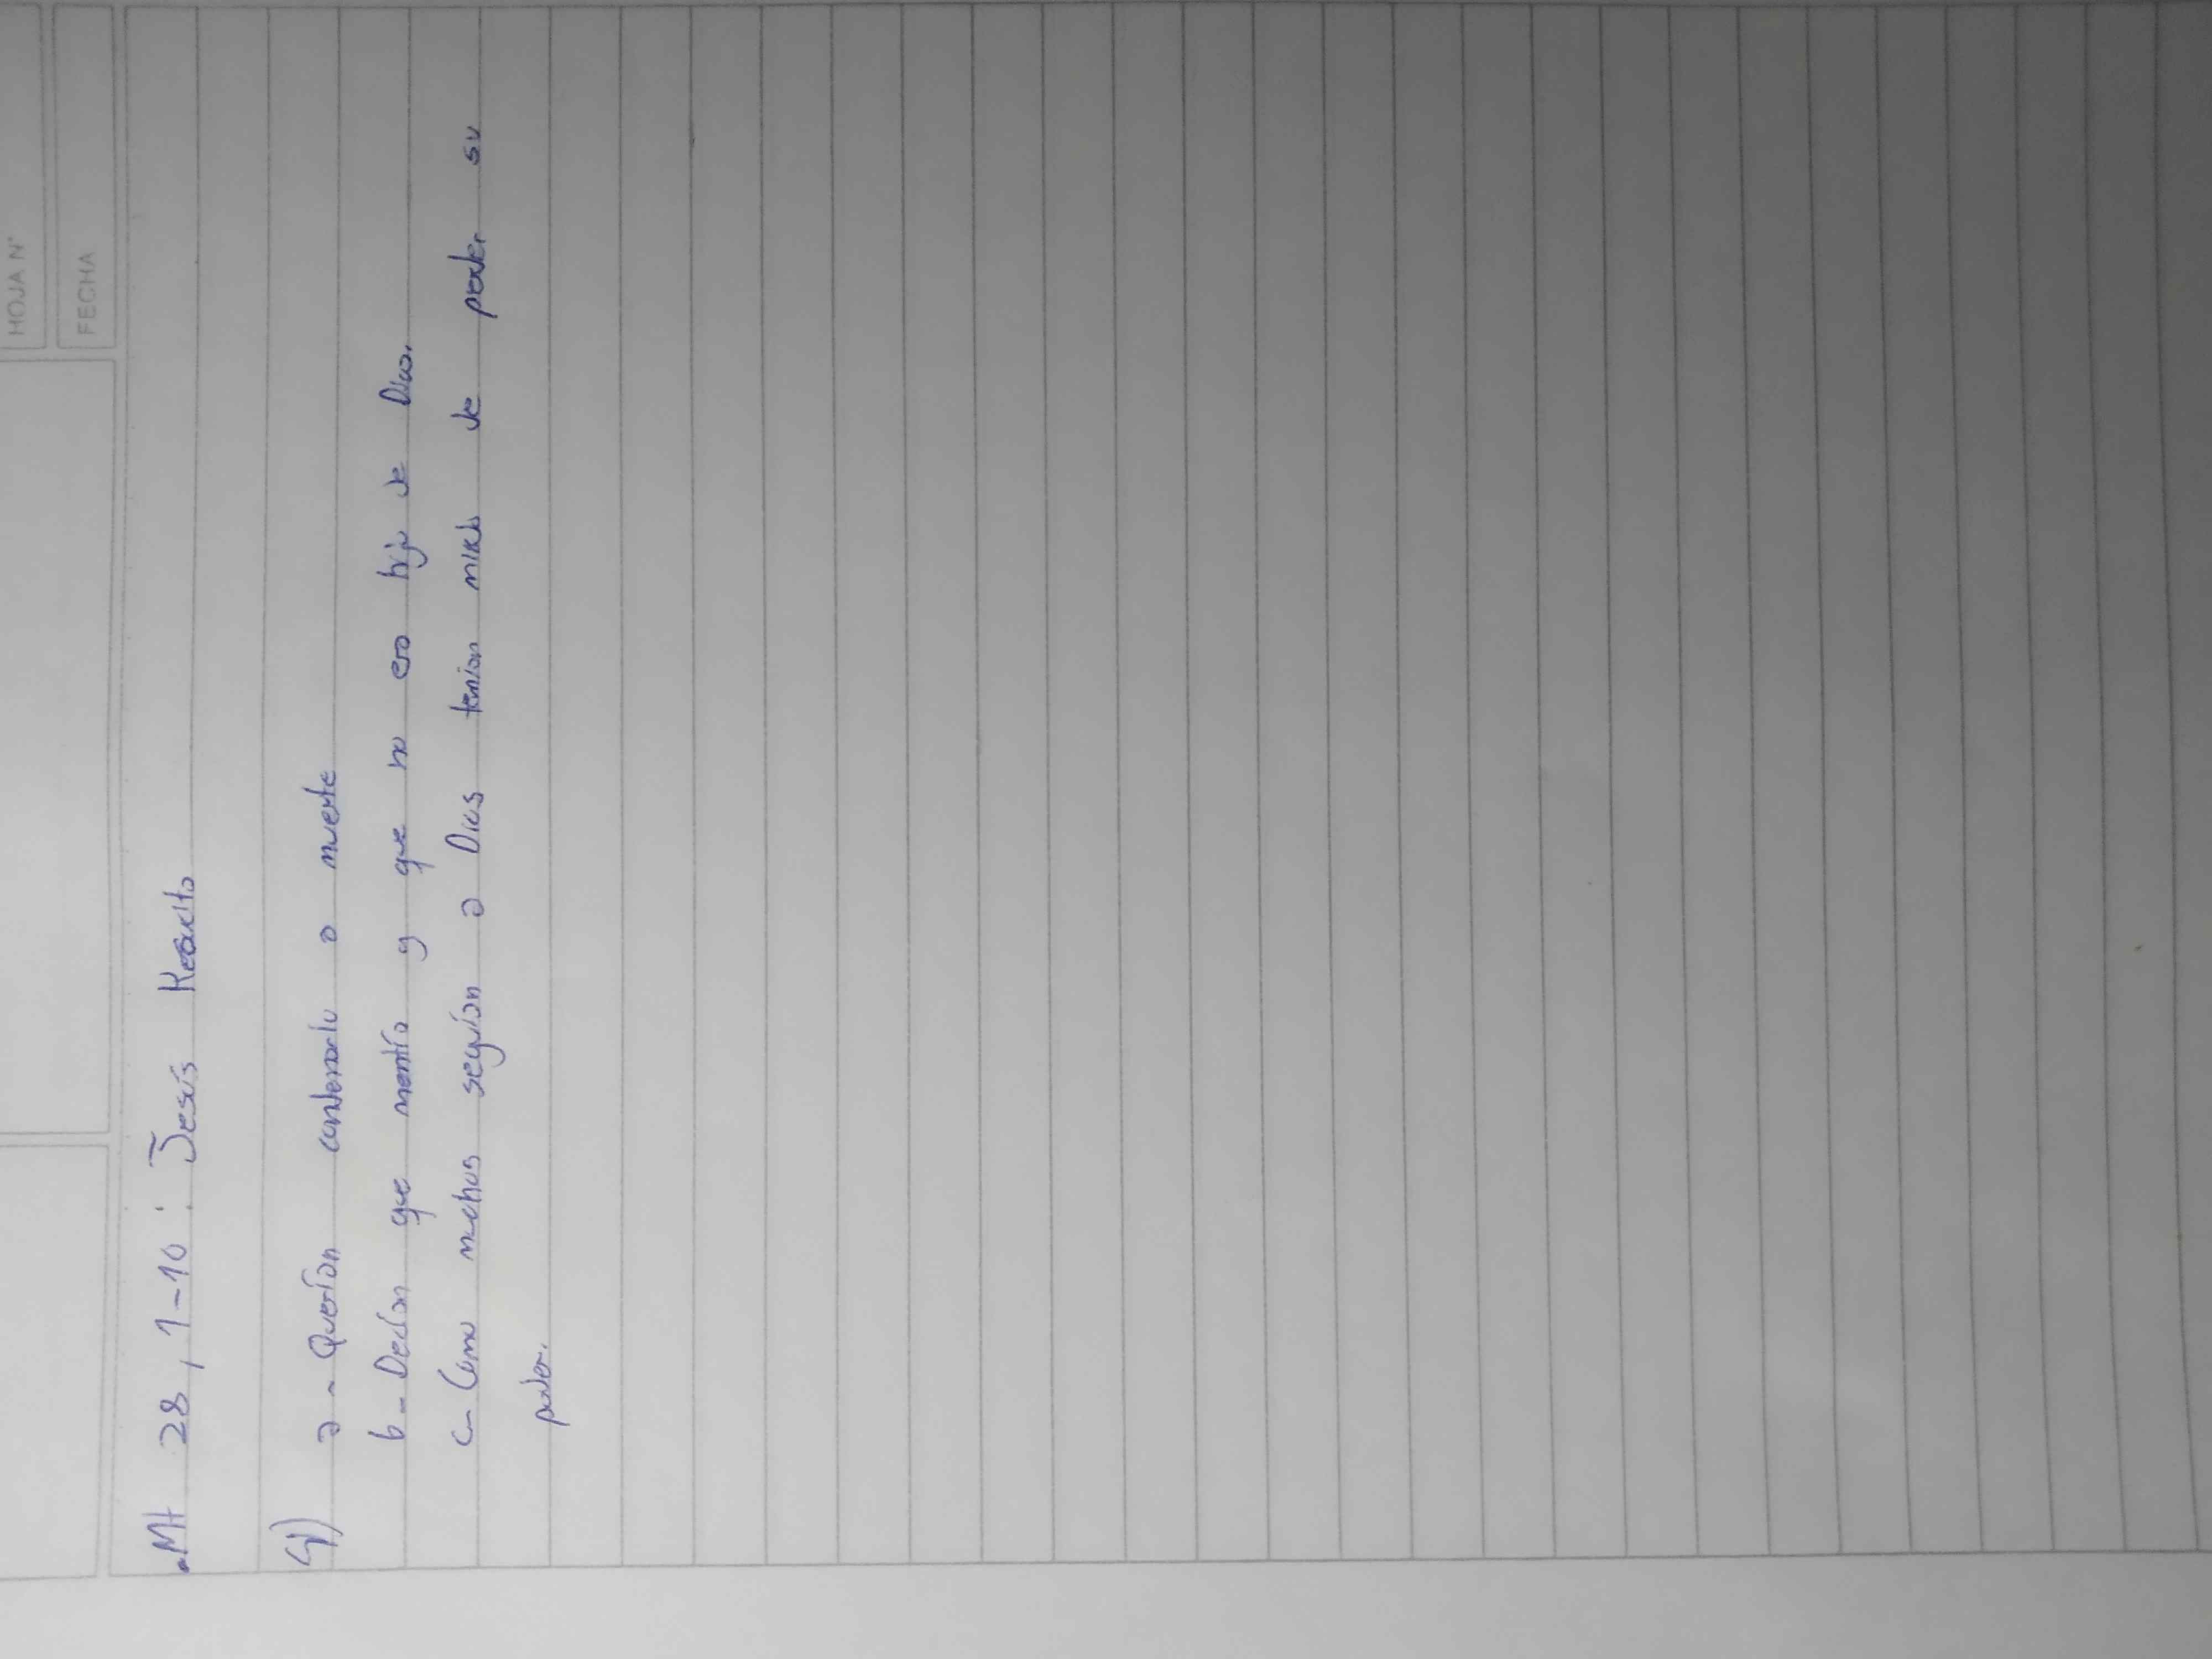 HOJA N°
FECHA
• Mt 28, 1-10: Jesús Resucito
4) a - Querían condenarlo a muerte
b - Decían que mentía y que no era hijo de Dios.
c - Como muchos seguían a Dios tenian miedo de perder su
poder.